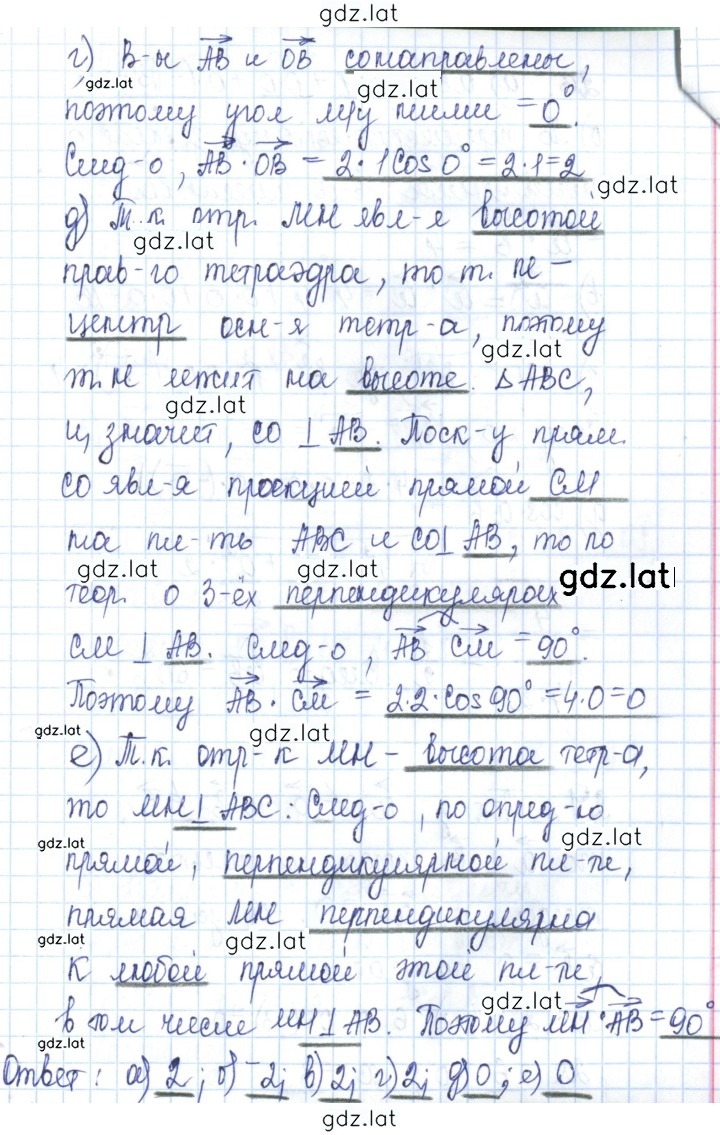 gdz.lat
г) В-ы AB и OB сонаправлены,
gdz.lat gdz.lat
поэтому угол м/у ними = 0°.
След-о, AB · OB = 2 · 1 Cos 0° = 2 · 1 = 2
gdz.lat
д) Т.к. отр. MH явл-я высотой
gdz.lat
прав-го тетраэдра, то т. H –
центр осн-я тетр-а, поэтому
gdz.lat
т. H лежит на высоте ΔABC,
gdz.lat
и, значит, CO ⊥ AB. Поск-у прям.
CO явл-я проекцией прямой CM
на пл-ть ABC и CO⊥ AB, то по
gdz.lat gdz.lat gdz.lat
теор. о 3-ёх перпендикулярах
CM ⊥ AB. След-о, AB CM = 90°.
Поэтому AB · CM = 2·2·cos 90° = 4·0=0
gdz.lat gdz.lat
е) Т.к. отр-к MH – высота тетр-а,
то MH ⊥ ABC. След-о, по опред-ю
gdz.lat gdz.lat
прямой, перпендикулярной пл-ти,
прямая MH перпендикулярна
gdz.lat gdz.lat
к любой прямой этой пл-ти,
gdz.lat
в том числе MH ⊥ AB. Поэтому MH · AB = 90°
gdz.lat
Ответ: а) 2; б) -2; в) 2; г) 2; д) 0; е) 0
gdz.lat